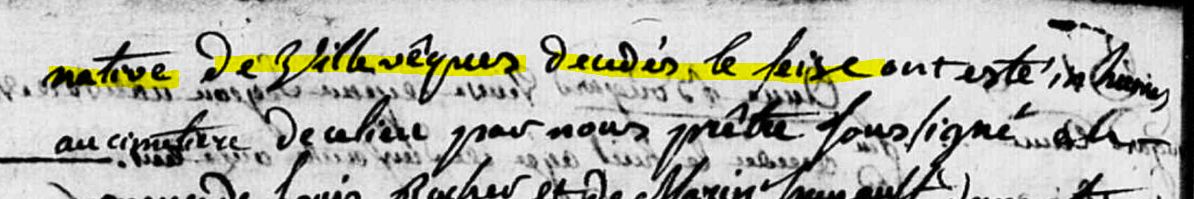 native de Villevêques decedés le seise ont esté inhumés
au cimetiere de ce lieu par nous prêtre soussigné a la
de Louis Rocher et de Marin